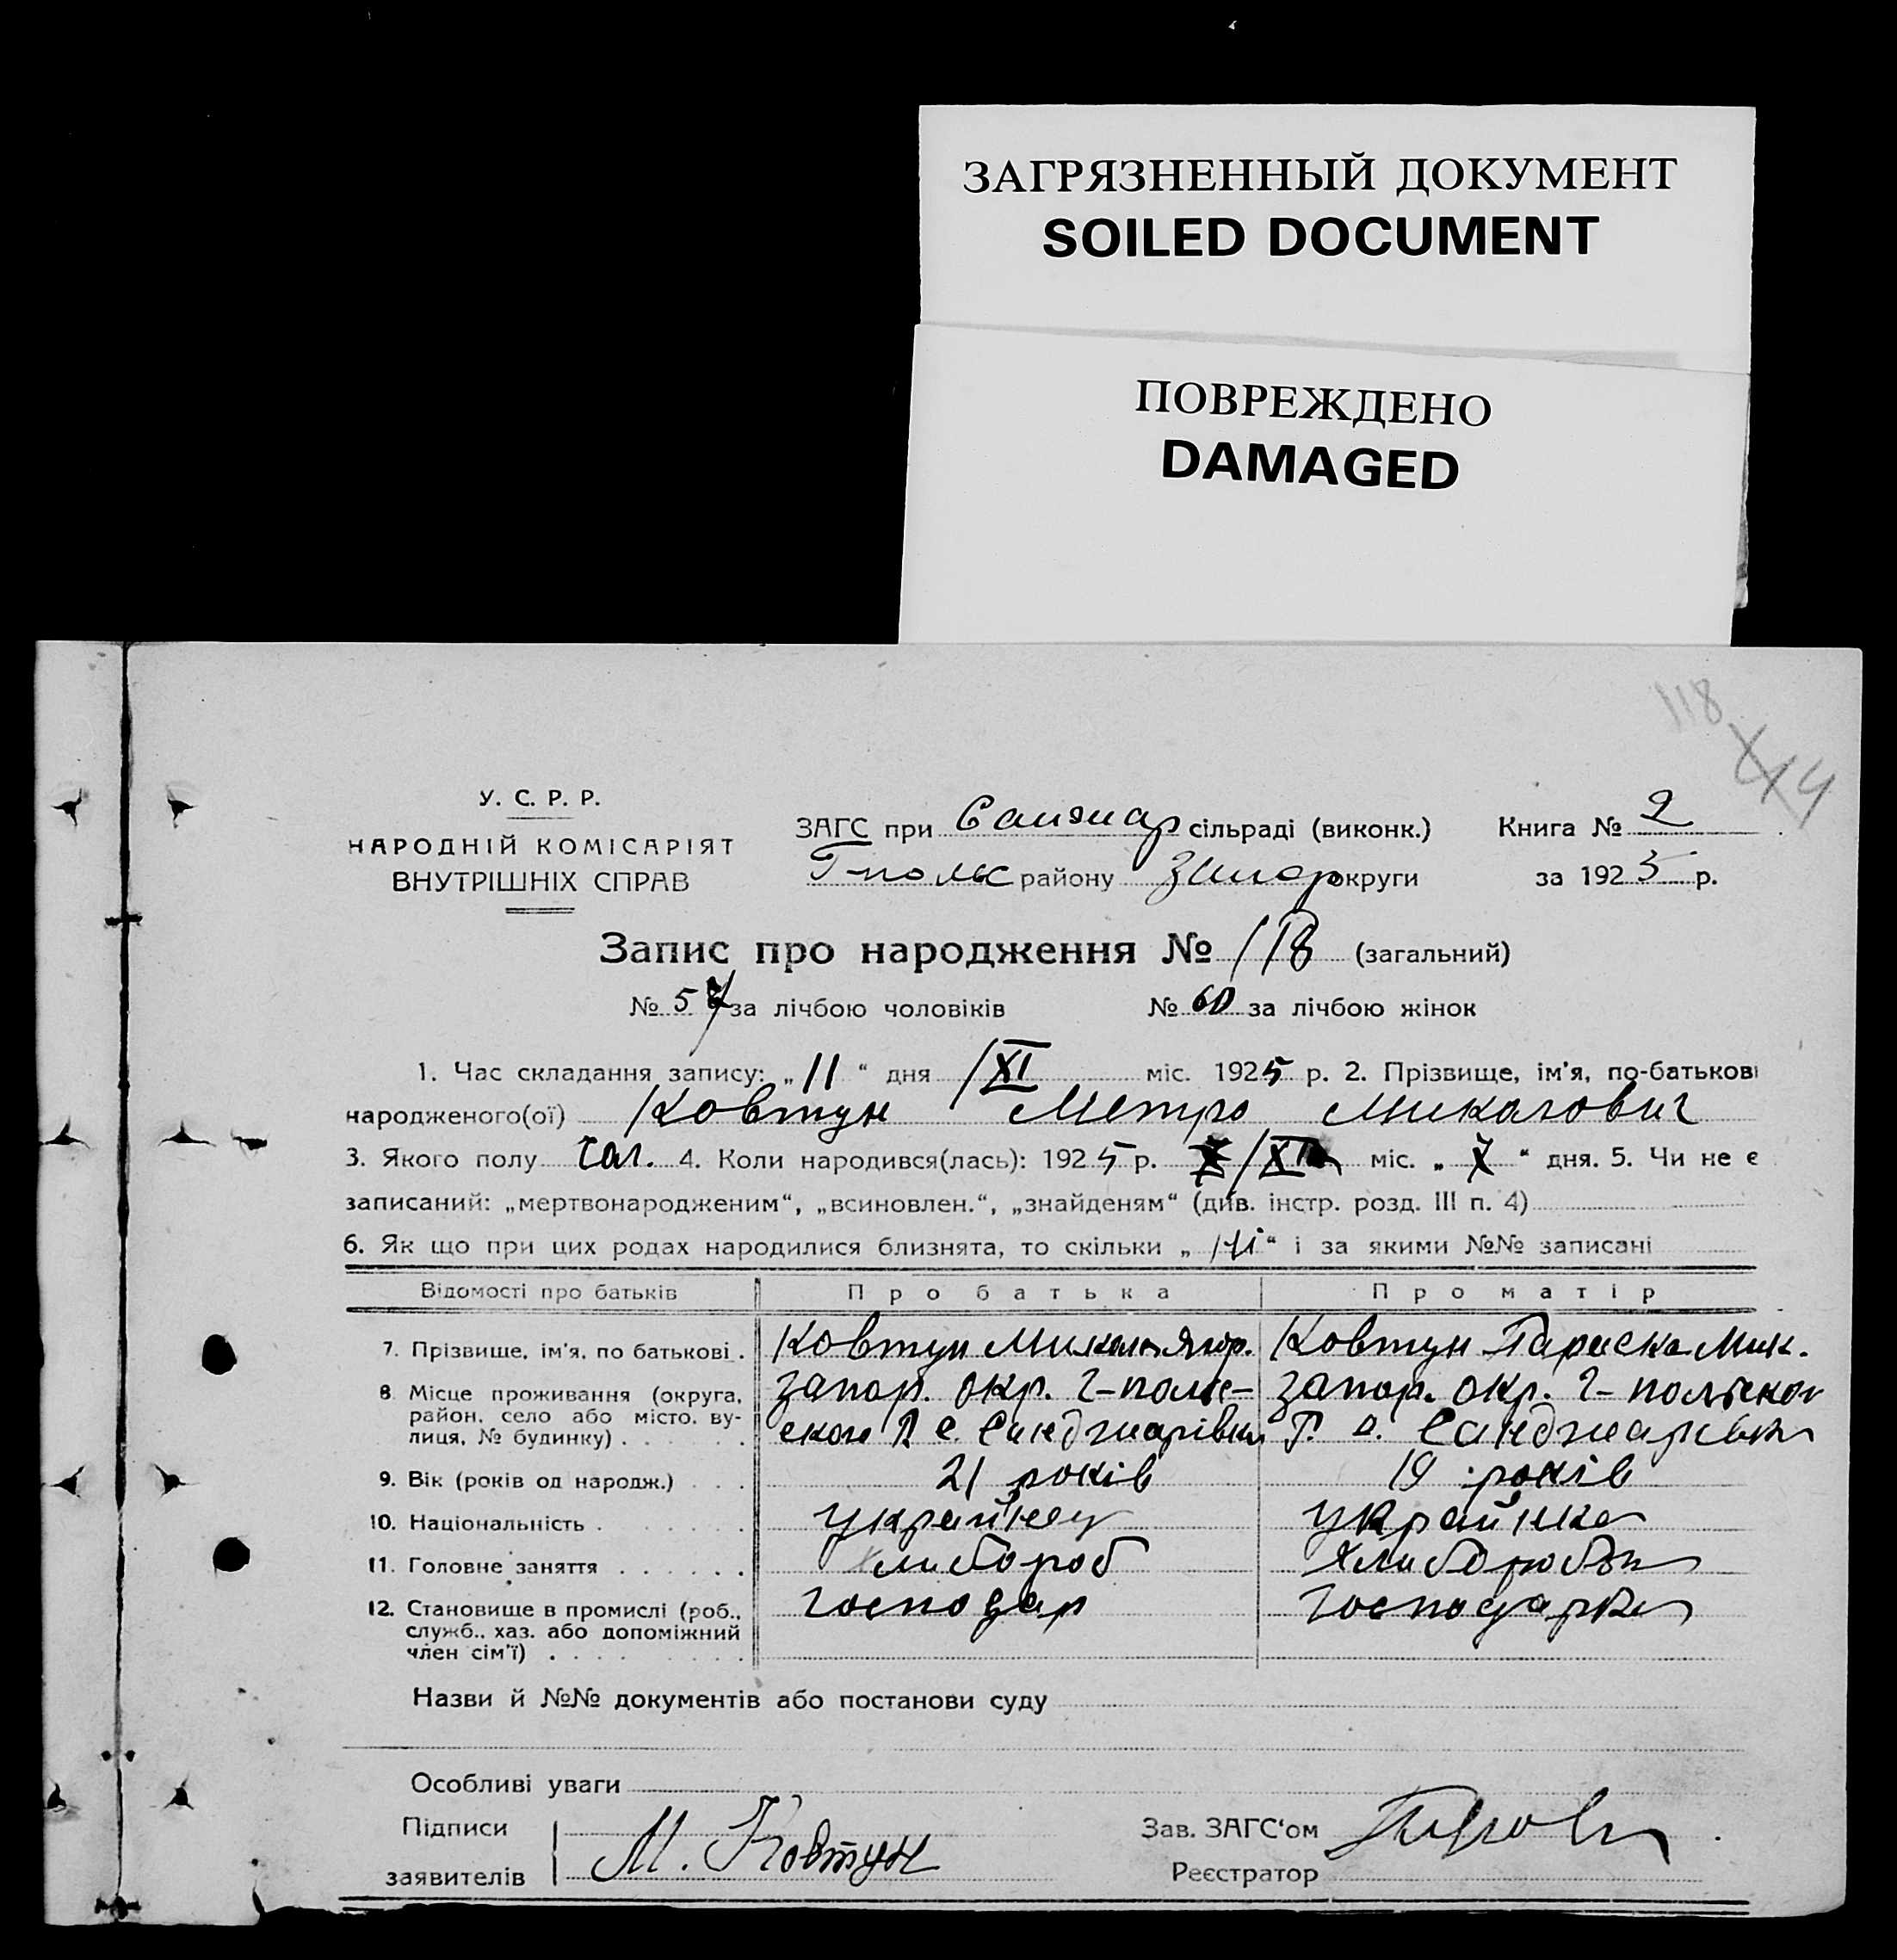 ЗАГРЯЗНЕННЫЙ ДОКУМЕНТ
SOILED DOCUMENT
ПОВРЕЖДЕНО
DAMAGED
118
У. С. Р. Р.
НАРОДНІЙ КОМІСАРІЯТ
ВНУТРІШНІХ СПРАВ
ЗАГС при Санжар сільраді (виконк.) Книга № 2
Г-польс району Запор округи за 1925 р.
Запис про народження № 118 (загальний)
№ 5 за лічбою чоловіків № 60 за лічбою жінок
1. Час складання запису: „ 11 “ дня /XI міс. 1925 р. 2. Прізвище, ім'я, по-батькові
народженого(ої) Ковтун Метро Миколович
3. Якого полу чол. 4. Коли народився(лась): 1925 р. /XI міс. „ “ дня. 5. Чи не є
записаний: „мертвонародженим“, „всиновлен.“, „знайденям“ (див. інстр. розд. III п. 4)
6. Як що при цих родах народилися близнята, то скільки „ ні “ і за якими №№ записані
Відомості про батьків Про батька Про матір
7. Прізвище, ім'я, по батькові. Ковтун Микола Ягор. Ковтун Параска Мик.
8 Місце проживання (округа, район, село або місто, вулиця, № будинку) Запор. окр. Г-поль- Запор. окр. Г-польского
ского Р. с. Санджарівка Р. с. Санджарівка
9. Вік (років од народж.) 21 років 19 років
10. Національність українец українка
11. Головне заняття хлибороб хлиборобка
12. Становище в промислі (роб., господар господарка
служб., хаз. або допоміжний
член сім'ї)
Назви й №№ документів або постанови суду
Особливі уваги
Підписи Зав. ЗАГС'ом
М. Ковтун
заявителів Реєстратор